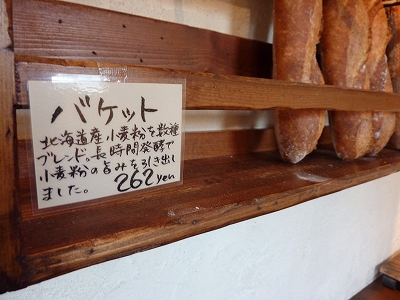 バケット
北海道産小麦粉を数種
ブレンド。長時間発酵で
小麦粉の旨みを引き出し
ました。 262yen